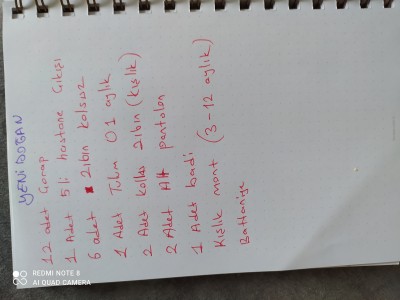 YENİ DOĞAN
12 adet Çorap
1 Adet 5 li hastane Çıkışı
6 adet zıbın kolsuz
1 Adet Tulum 01 aylık
2 Adet kollu zıbın (kışlık)
2 Adet Alt pantolon
1 Adet badi
Kışlık mont (3-12 aylık)
Battaniye
REDMI NOTE 8
AI QUAD CAMERA